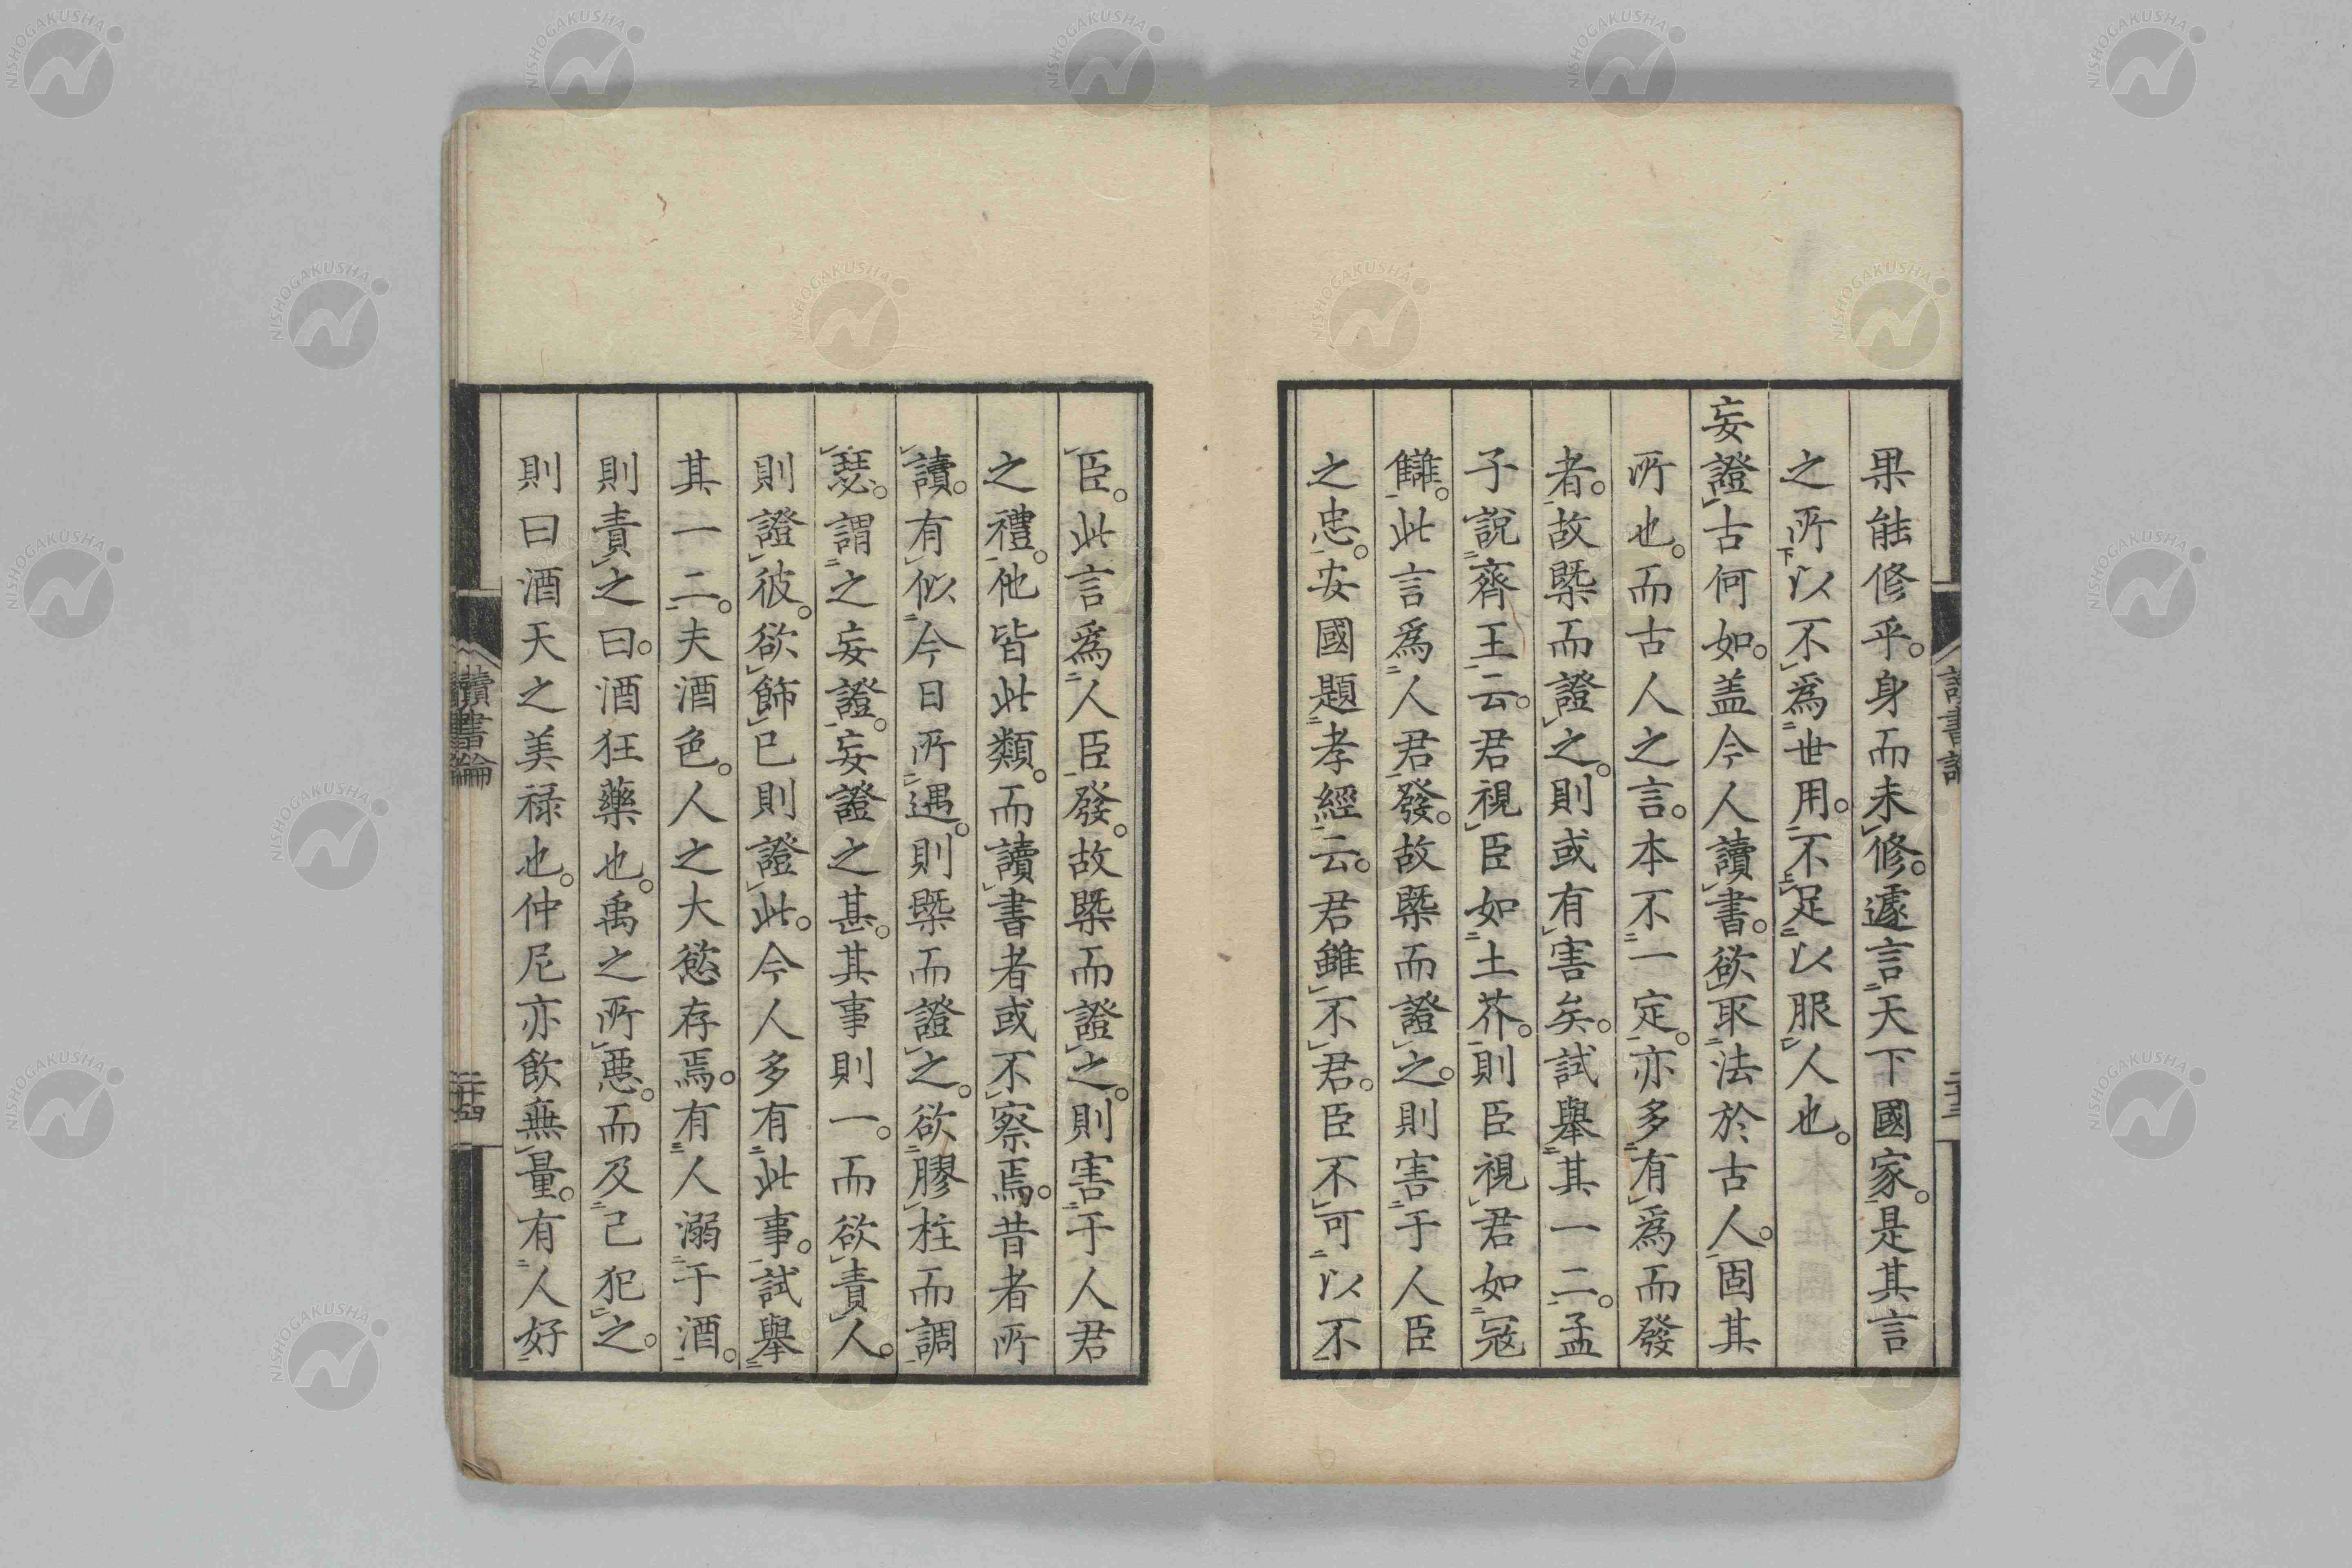 果能修乎。身而未修。遽言天下國家。是其言
之所以不爲世用。不足以服人也。
妄證古何如。盖今人讀書。欲取法於古人。固其
所也。而古人之言。本不一定。亦多有爲而發
者。故槩而證之。則或有害矣。試舉其一二。孟
子說齊王云。君視臣如土芥。則臣視君如寇
讎。此言爲人君發。故槩而證之。則害于人臣
之忠。安國題孝經云。君雖不君。臣不可以不
臣。此言爲人臣發。故槩而證之。則害于人君
之禮。他皆此類。而讀書者或不察焉。昔者所
讀。有似今日所遇。則槩而證之。欲膠柱而調
瑟。謂之妄證。妄證之甚。其事則一。而欲責人。
則證彼。欲飾己則證此。今人多有此事。試舉
其一二。夫酒色。人之大慾存焉。有人溺于酒。
則責之曰。酒狂藥也。禹之所惡。而及己犯之。
則曰酒天之美祿也。仲尼亦飮無量。有人好
讀書論
二十四
NISHOGAKUSHA